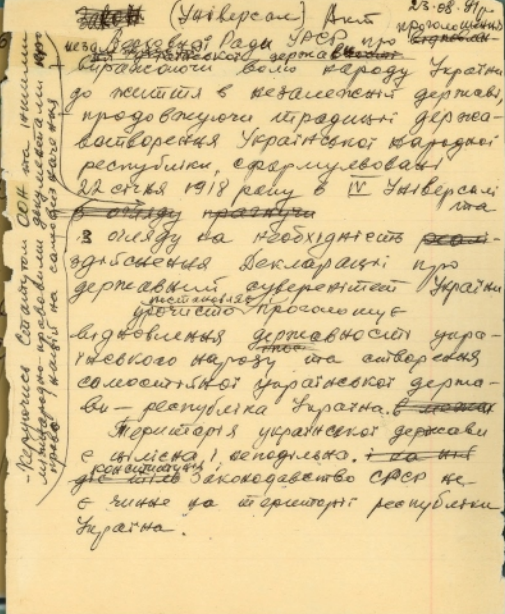 Закон (Універсал) Акт 23.08.91р.
проголошення
Верховної Ради УРСР про
незалежної української держави
виражаючи волю народу України
до життя в незалежній державі,
продовжуючи традиції держа-
вотворення Української народної
республіки, сформульовані
22 січня 1918 року в IV Універсалі
та
з огляду прагнучи
з огляду на необхідність реалі-
здійснення Декларації про
державний суверенітет України
постановляє
урочисто проголошує
відновлення державності укра-
їнського народу та створення
самостійної української держа-
ви – республіка Україна. в межах
Територія української держави
є цілісна і неподільна. і на ній
конституція і
діє лише Законодавство СРСР не-
є чинне на території республіки
Україна.
- Керуючись Статутом ООН та іншими
міжнародно-правовими документами про
право націй на самовизначення